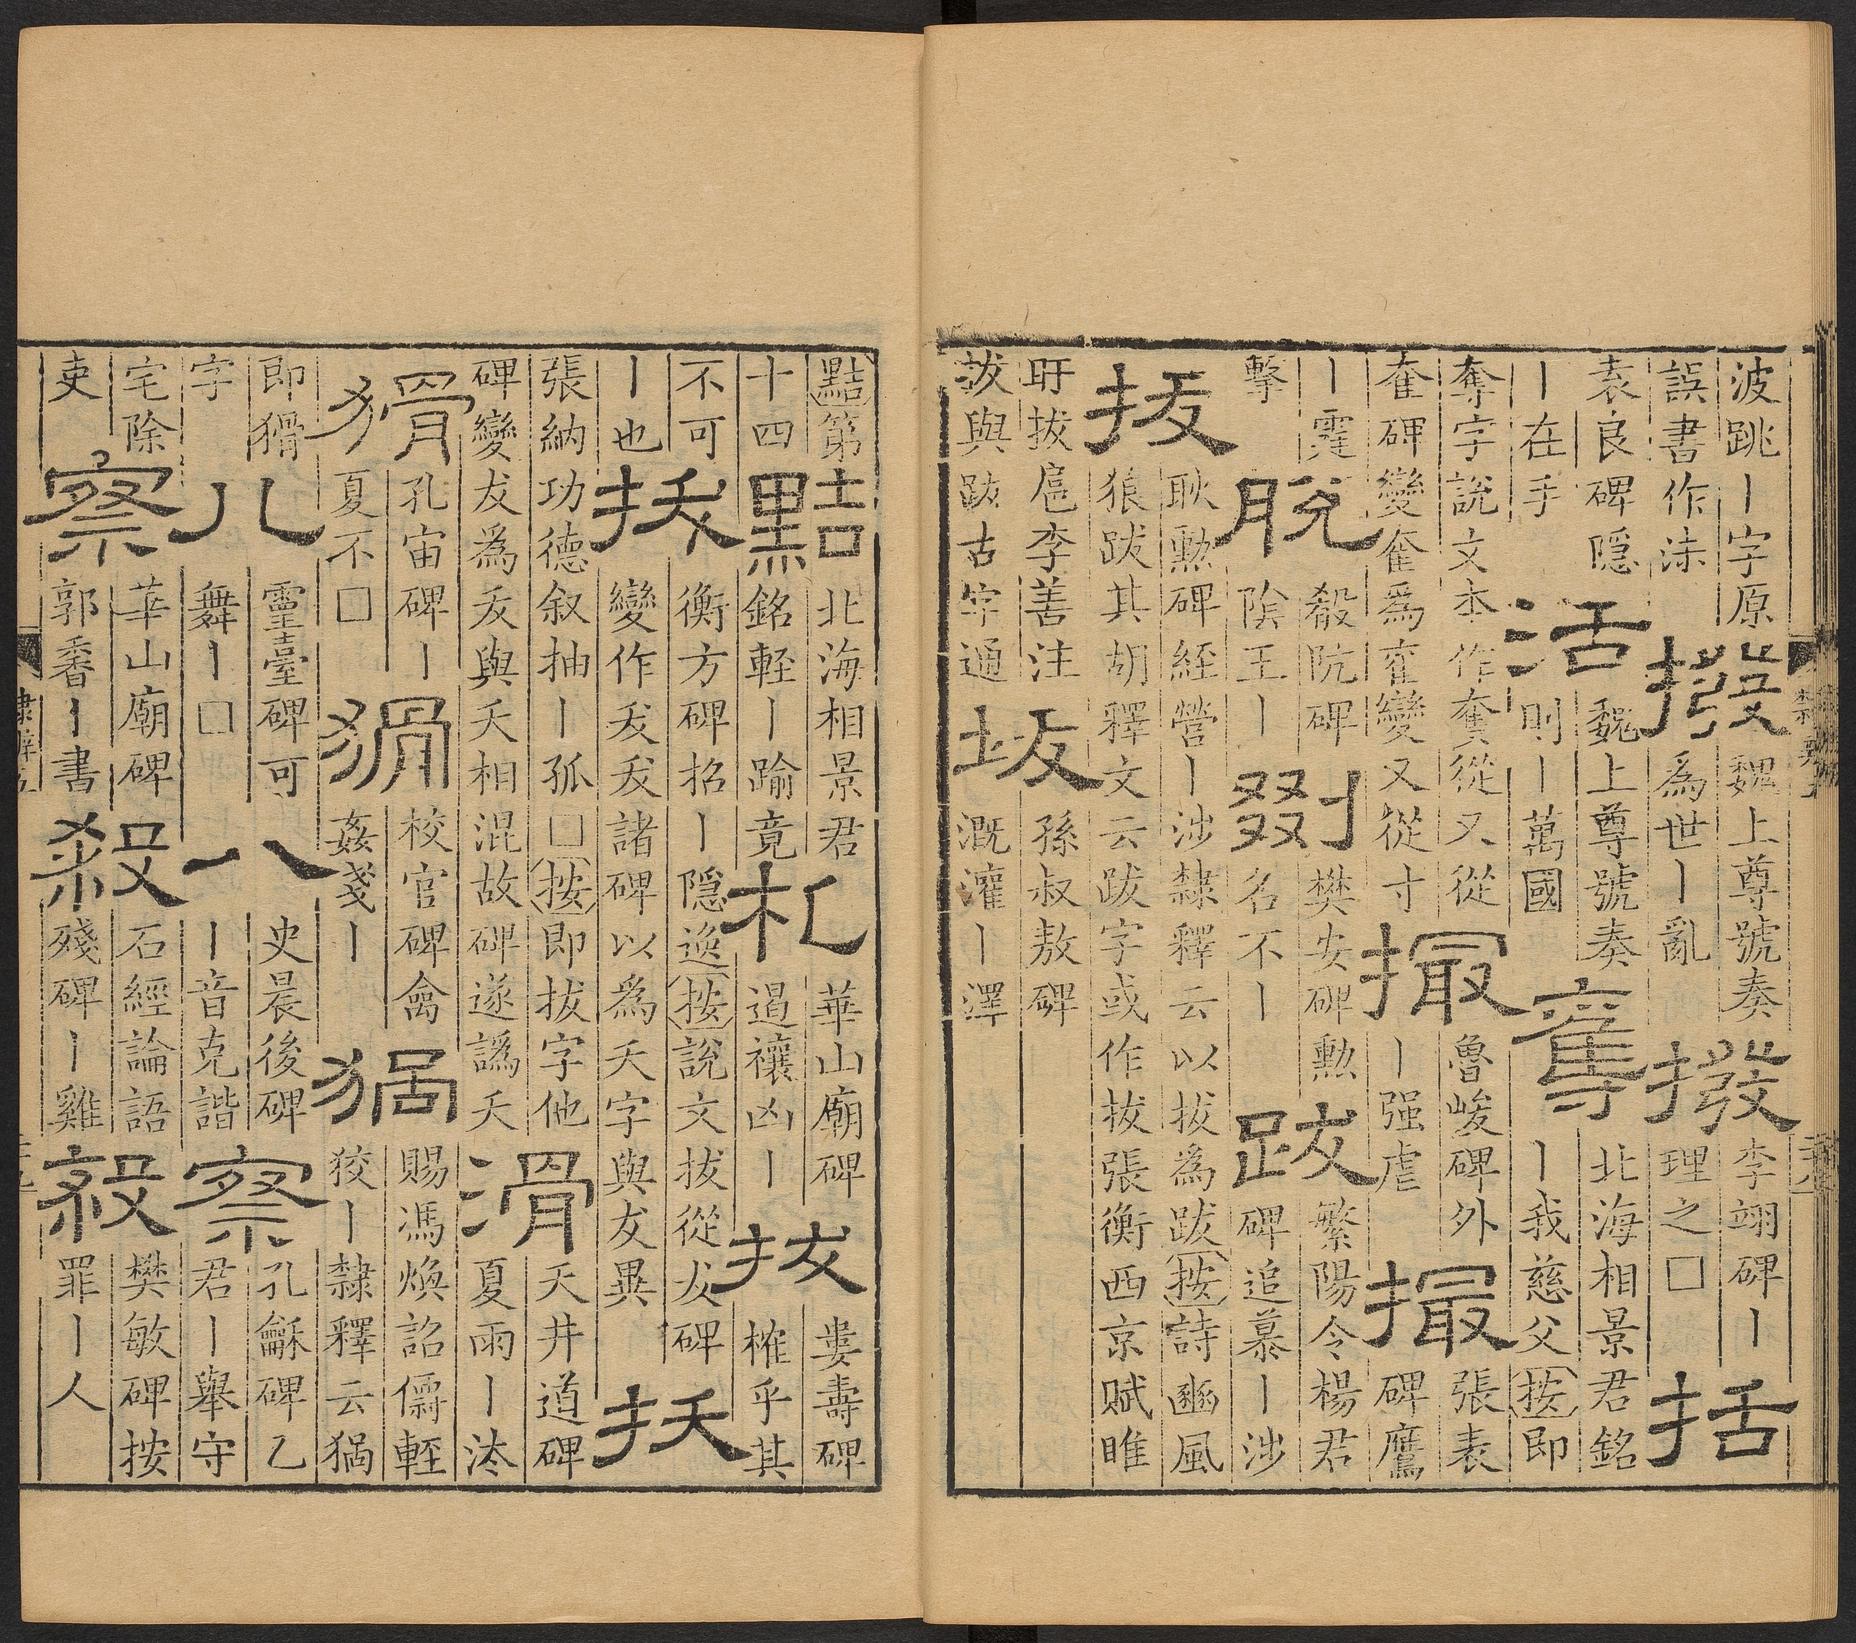 波跳丨字原
誤書作㳒
撥
魏上尊號奏
為世丨亂
撥
李翊碑丨
理之□
括
袁良碑隱
丨在手
活
魏上尊號奏
則丨萬國
奪
北海相景君銘
丨我慈父按即
奪字說文本作奪從又從
奞碑變奞為奞變又從寸
撮
魯峻碑外
丨强虐
撮
張表
碑鷹
丨霆
擊
脫
殽阬碑
陰王丨
剟
樊安碑勲
名不丨
跋
繁陽令楊君
碑追慕丨涉
拔
耿勳碑經營丨涉隸釋云以拔為跋按詩豳風
狼跋其胡釋文云跋字或作拔張衡西京賦睢
盱拔扈李善注
拔與跋古字通
坺
孫叔敖碑
溉灌丨澤
黠第
十四
黠
北海相景君
銘輕丨踰竟
札
華山廟碑
遏禳凶丨
拔
婁壽碑
榷乎其
不可
丨也
拔
衡方碑招丨隱逸按說文拔從犮碑
變作犮犮諸碑以為夭字與犮異
拔
張納功德叙抽丨孤□按即拔字他
碑變犮為犮與夭相混故碑遂譌夭
滑
天井道碑
夏雨丨汰
猾
孔宙碑丨
夏不□
猾
校官碑禽
姦戔丨
猾
賜馮煥詔儜輕
狡丨隸釋云猧
即猾
字
八
靈臺碑可
舞丨□
八
史晨後碑
丨音克諧
察
孔龢碑乙
君丨舉守
宅除
吏
察
華山廟碑
郭香丨書
殺
石經論語
殘碑丨雞
殺
樊敏碑按
罪丨人